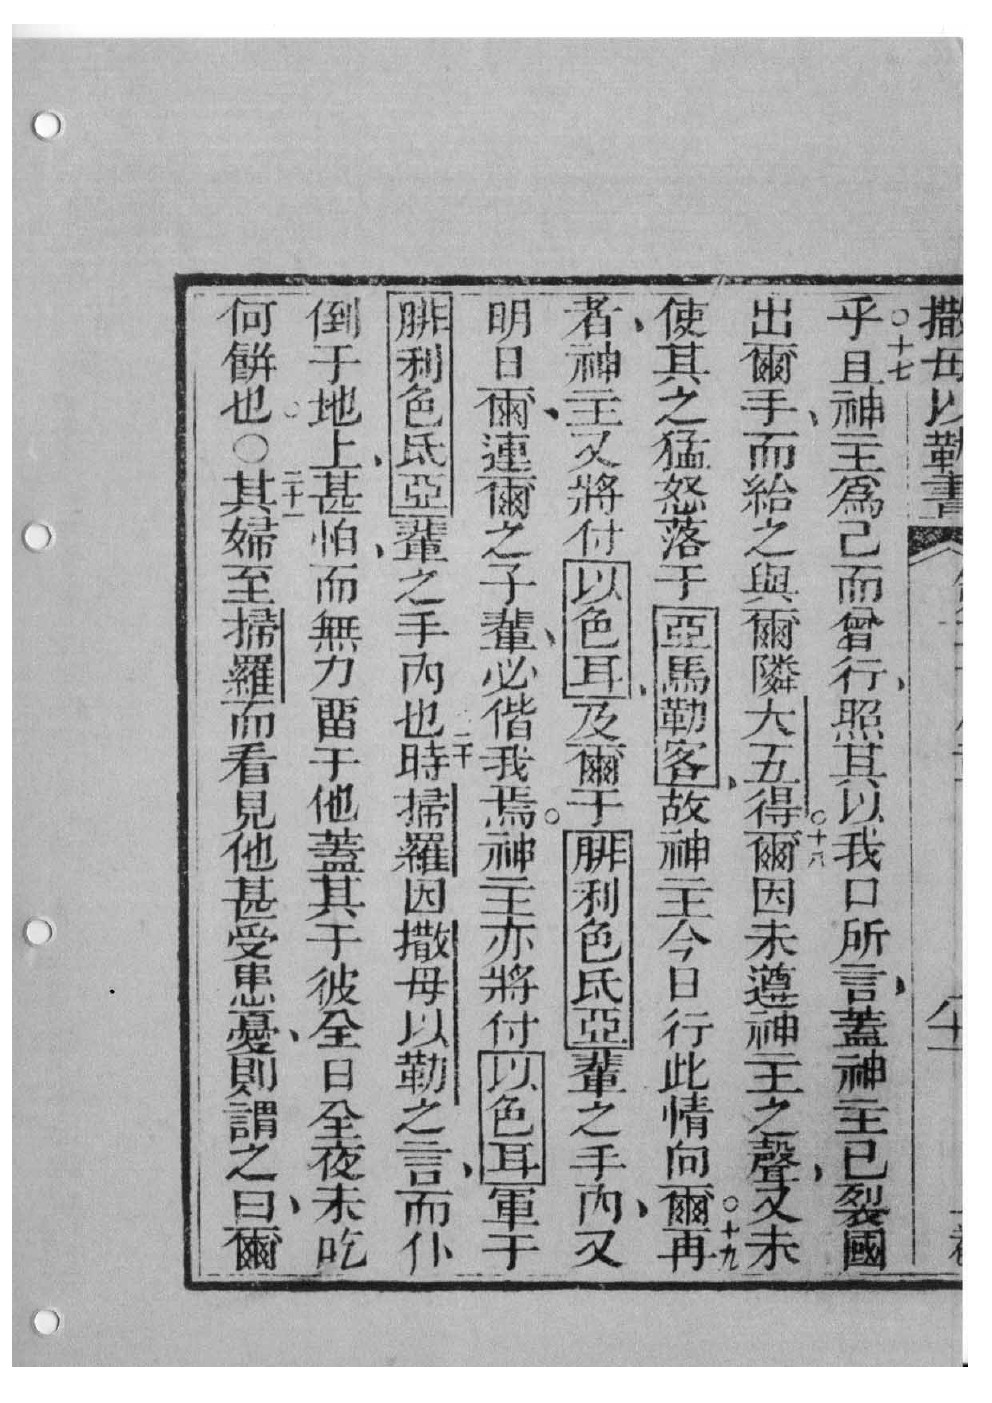 撒母以勒書
乎○十七且神主爲己而曾行、照其以我口所言、蓋神主已裂國
出爾手、而給之與爾隣大五得○十八爾因未遵神主之聲、又未
使其之猛怒落于亞馬勒客、故神主今日行此情向爾○十九再
者、神主又將付以色耳、及爾于腓利色氏亞輩之手內、又
明日爾、連爾之子輩、必偕我焉○神主亦將付以色耳軍于
腓利色氏亞輩之手內也二十時掃羅因撒母以勒之言、而仆
倒于地上、甚怕、而無力畱于他蓋其于彼全日全夜未吃
何餅也○二十一其婦至掃羅而看見他甚受患憂、則謂之曰、爾